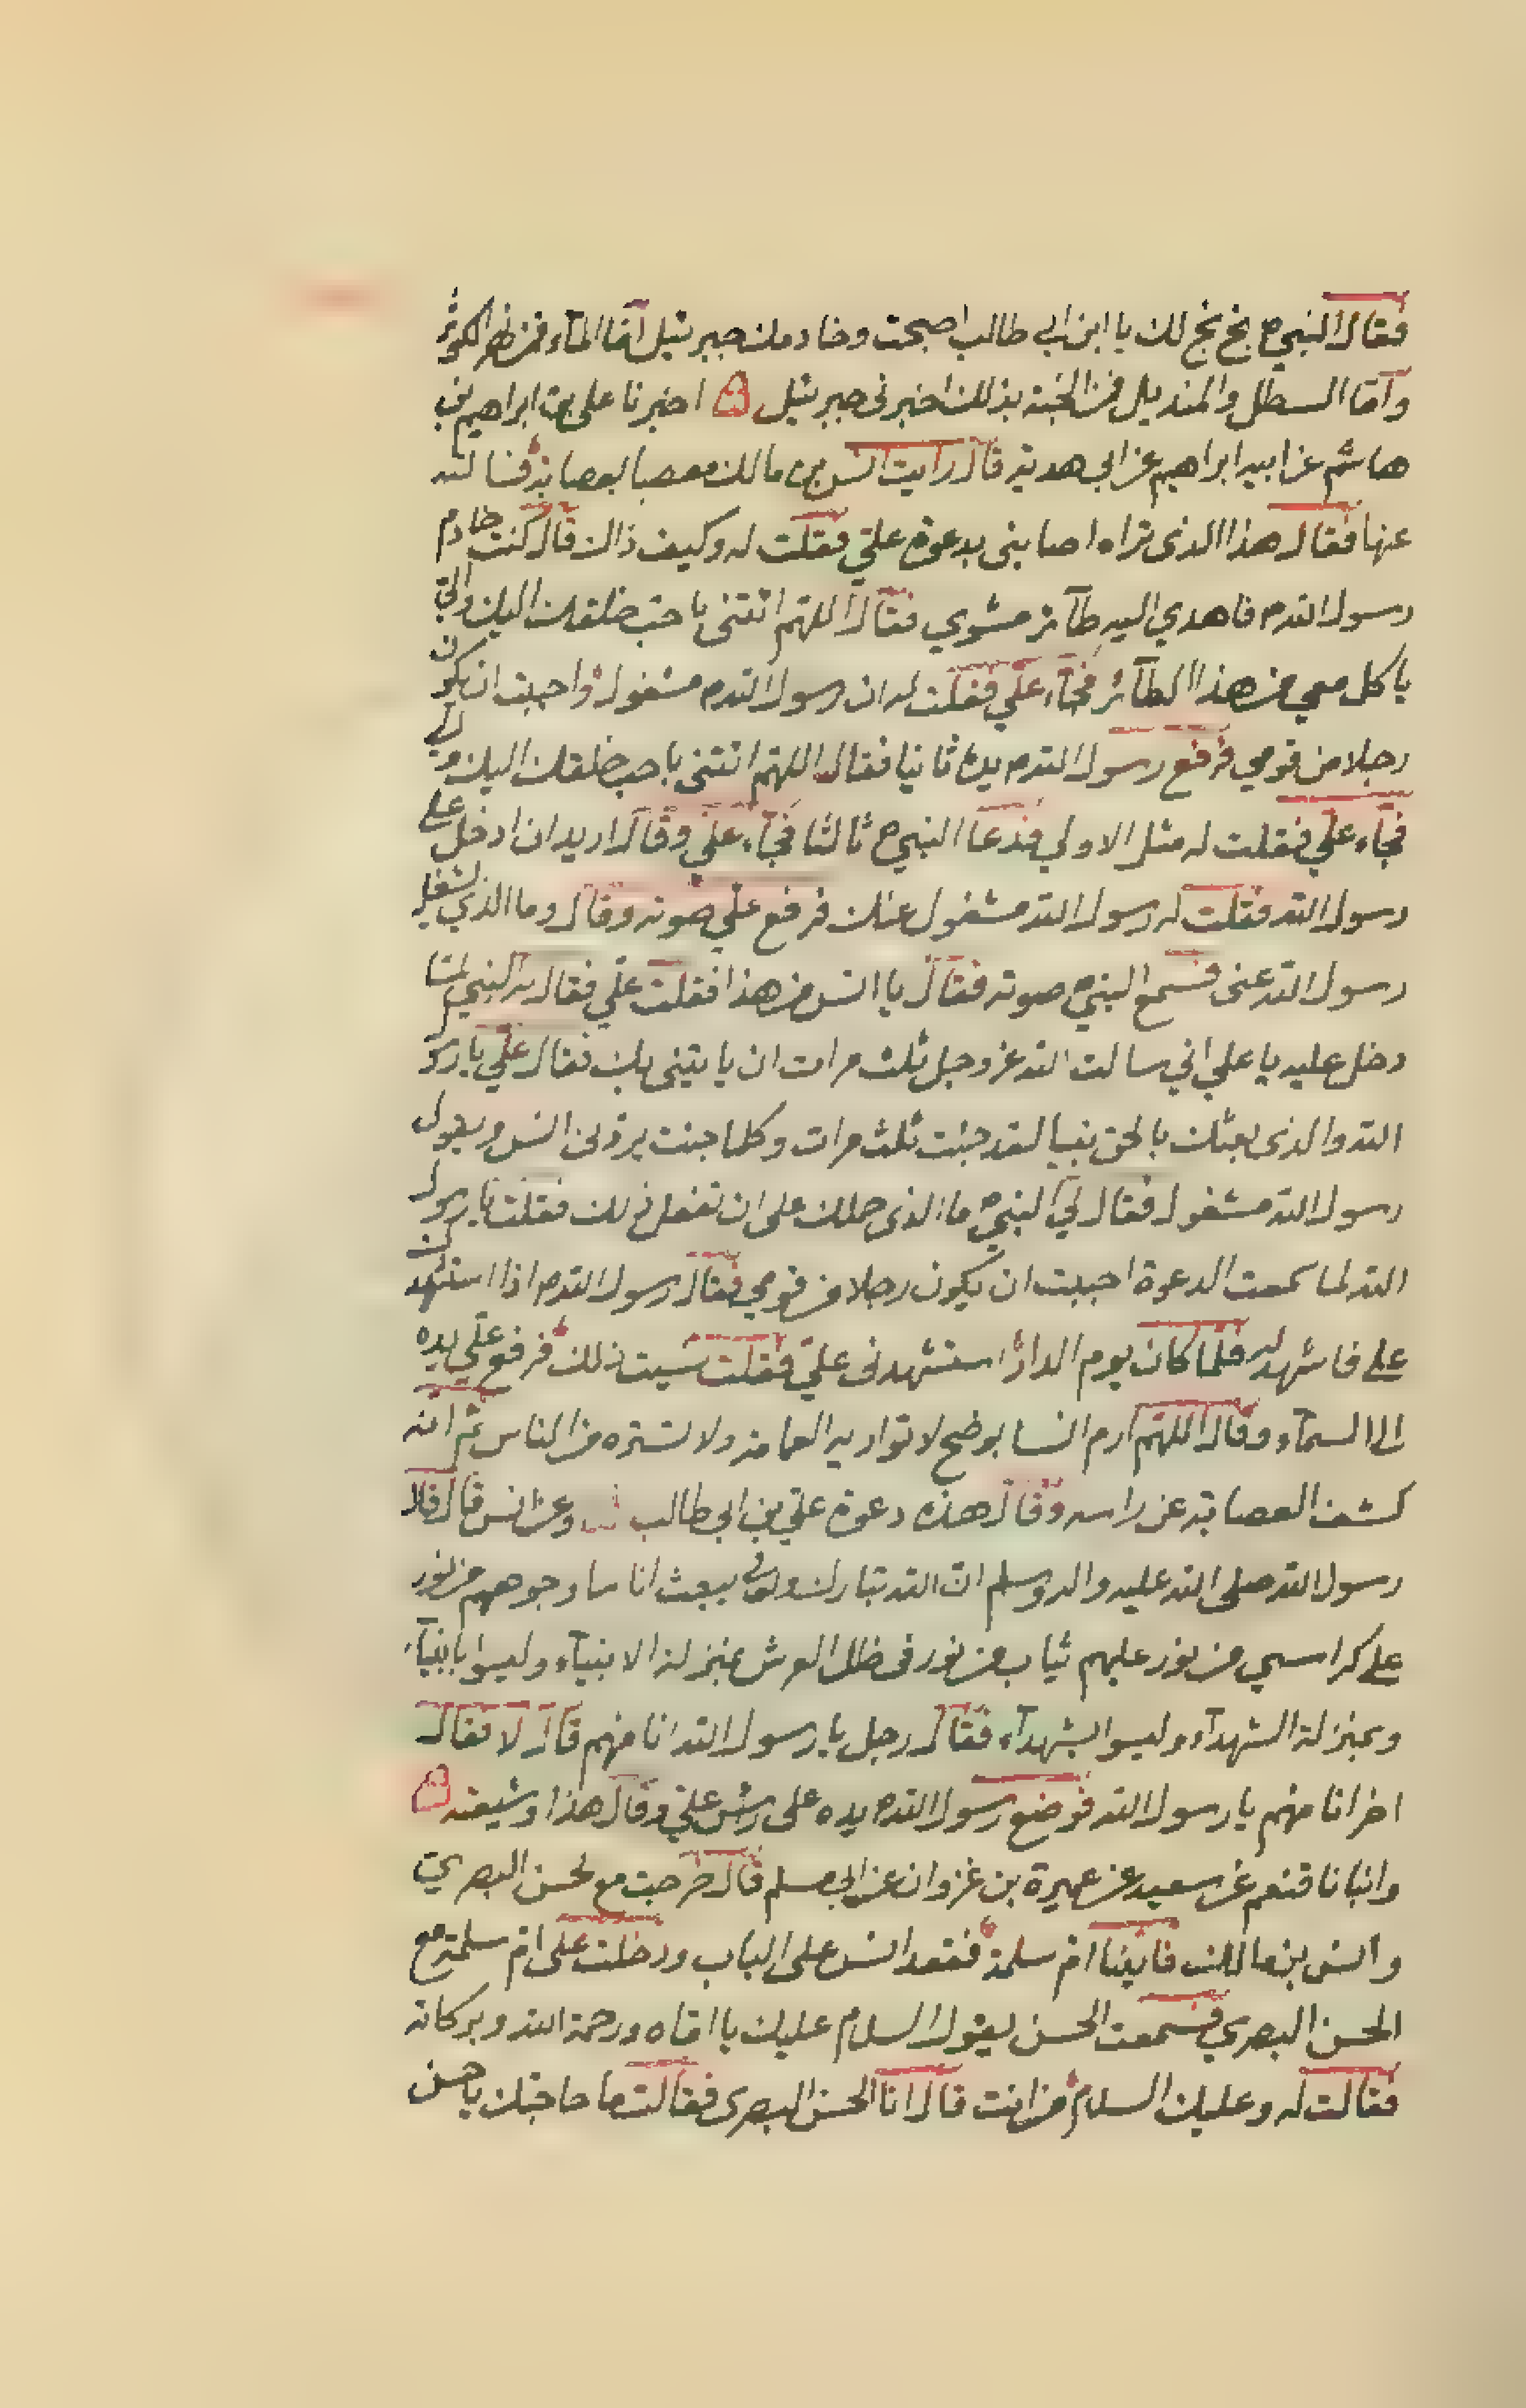 فقال النبي ص بخ بخ لك يا ابن ابي طالب اصبحت وخادمك جبرئيل اما الماء فمن نهر الكوثر
وامّا السطل والمنديل فمن الجنة بذلك اخبرني جبرئيل اخبرنا علي بن ابراهيم بن
هاشم عن ابيه ابراهيم عن ابي هدبة قال رايت انس بن مالك معصبا بعصابة فسالته
عنها فقال هذا الذي تراه اصابني بدعوة علي فقلت له وكيف ذاك قال كنت خادم
رسول الله ص فاهدي اليه طائر مشوي فقال اللهم ائتني باحب خلقك اليك والي
ياكل معي من هذا الطائر فجاء علي فقلت له ان رسول الله ص مشغول واحببت ان يكون
رجلا من قومي فرفع رسول الله ص يده ثانيا فقال اللهم ائتني باحب خلقك اليك والي
فجاء علي فقلت له مثل الاولي فدعا النبي ص ثالثا فجاء علي وقال اريد ان ادخل على
رسول الله فقلت له رسول الله مشغول عنك فرفع علي صوته وقال وما الذي يشغل
رسول الله عني فسمع النبي ص صوته فقال يا انس من هذا فقلت علي فقال له النبي لمّا
دخل عليه يا علي اني سالت الله عز وجل ثلث مرات ان ياتيني بك فقال علي يا رسو
الله والذي بعثك بالحق نبيا لقد جئت ثلث مرات وكلما جئت يردني انس ويقول
رسول الله مشغول فقال لي النبي ص ما الذي حملك على ان تفعل ذلك فقلت يا رسول
الله لما سمعت الدعوة احببت ان يكون رجلا من قومي فقال رسول الله ص اذا استشهدك
علي فاشهد له فلما كان يوم الدار استشهدني علي فقلت نسيت ذلك فرفع علي يده
الى السماء وقال اللهم ارم انسا بوضح لا تواريه العمامة ولا تستره من الناس ثم انه
كشف العصابة عن راسه وقال هذه دعوة علي بن ابي طالب وعن انس قال قال
رسول الله صلى الله عليه واله وسلم ان الله تبارك وتعالى يبعث اناسا وجوههم من نور
على كراسي من نور عليهم ثياب من نور في ظل العرش بمنزلة الانبياء وليسوا بانبياء
وبمنزلة الشهداء وليسوا بشهداء فقال رجل يا رسول الله انا منهم قال لا فقال
اخر انا منهم يا رسول الله فوضع رسول الله ص يده على راس علي وقال هذا وشيعته
وانبانا قنعم عن سعيد عن عميرة بن غزوان عن ابي مسلم قال خرجت مع الحسن البصري
وانس بن مالك فاتينا ام سلمة فقعد انس على الباب ودخلت على ام سلمة مع
الحسن البصري فسمعت الحسن يقول السلام عليك يا اماه ورحمة الله وبركاته
فقالت له وعليك السلام من انت قال انا الحسن البصري فقالت ما حاجتك يا حسن